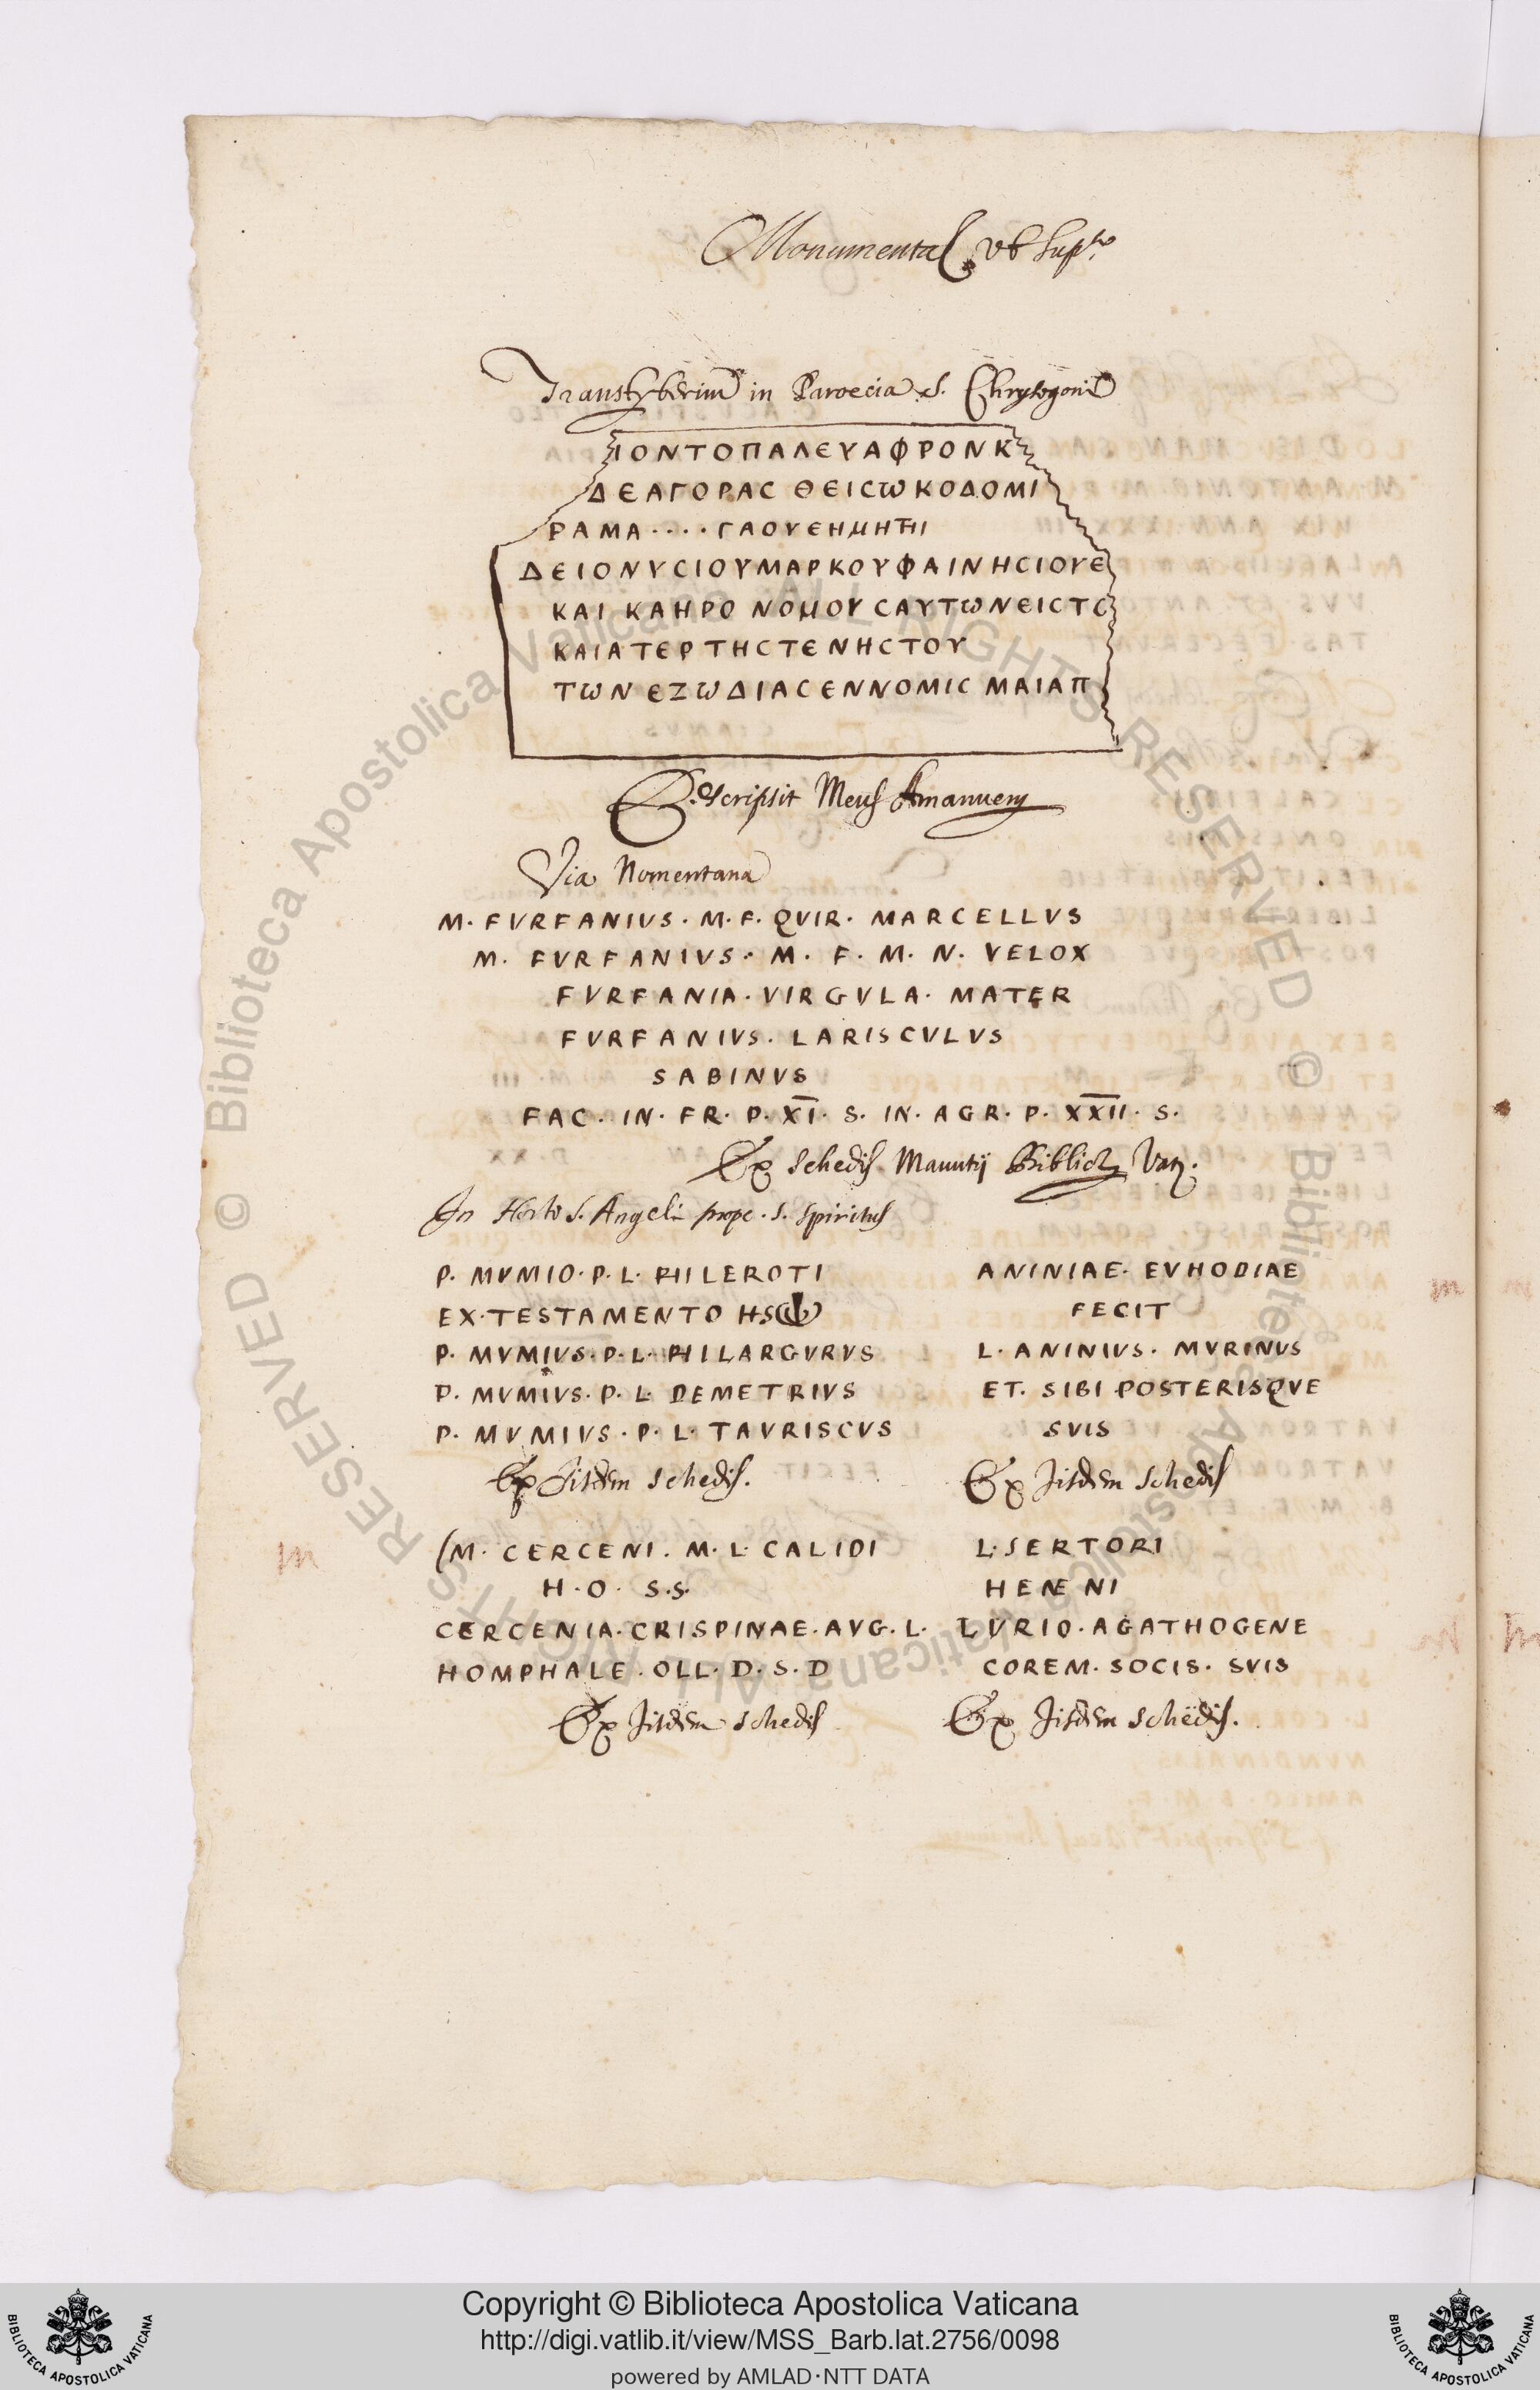 Monumenta vt sup.ᵃ
Transtyberim in Paroecia S. Chrysogoni
ΙΟΝΤΟΠΑΛΕΥΑΦΡΟΝΚ
ΔΕΑΓΟΡΑϹ ΘΕΙϹωΚΟΔΟΜΙ
ΡΑΜΑ....ΓΑΟΥΕΗΜΗ
ΔΕΙΟΝΥϹΙΟΥΜΑΡΚΟΥΦΑΙΝΗϹΙΟΥΕ
ΚΑΙ ΚΛΗΡΟ ΝΟΜΟΥϹΑΥΤωΝΕΙϹΤΟ
ΚΑΙΑΤΕΡΤΗϹΤΕΝΗϹΤΟΥ
ΤωΝΕΖωΔΙΑϹΕΝΝΟΜΙϹ ΜΑΙΑΠ
Descripsit Meus Amanuens
Via Nomentana
M. FVRFANIVS. M. F. QVIR. MARCELLVS
M. FVRFANIVS. M. F. M. N. VELOX
FVRFANIA. VIRGVLA. MATER
FVRFANIVS. LARISCVLVS
SABINVS
FAC. IN. FR. P. X̅I̅. S. IN. AGR. P. X̅X̅I̅I̅. S.
Ex Schedis Manutij Biblioth Vat.
In Horto S. Angeli prope. S. Spiritus
P. MVMIO. P. L. PHILEROTI
EX. TESTAMENTO HS
P. MVMIVS. P. L. PHILARGVRVS
P. MVMIVS. P. L. DEMETRIVS
P. MVMIVS. P. L. TAVRISCVS
Ex Iisdem Schedis.
ANINIAE. EVHODIAE
FECIT
L. ANINIVS. MVRINVS
ET. SIBI POSTERISQVE
SVIS
Ex Iisdem Schedis
M. CERCENI. M. L. CALIDI
H. O. S.S.
CERCENIA. CRISPINAE. AVG. L.
HOMPHALE. OLL. D. S. D
Ex Iisdem Schedis
L. SERTORI
HENENI
LVRIO. AGATHOGENE
COREM. SOCIS. SVIS
Ex Iisdem Schedis.
m
© Biblioteca Apostolica Vaticana ALL RIGHTS RESERVED
Copyright © Biblioteca Apostolica Vaticana
http://digi.vatlib.it/view/MSS_Barb.lat.2756/0098
powered by AMLAD·NTT DATA
BIBLIOTECA APOSTOLICA VATICANA
BIBLIOTECA APOSTOLICA VATICANA